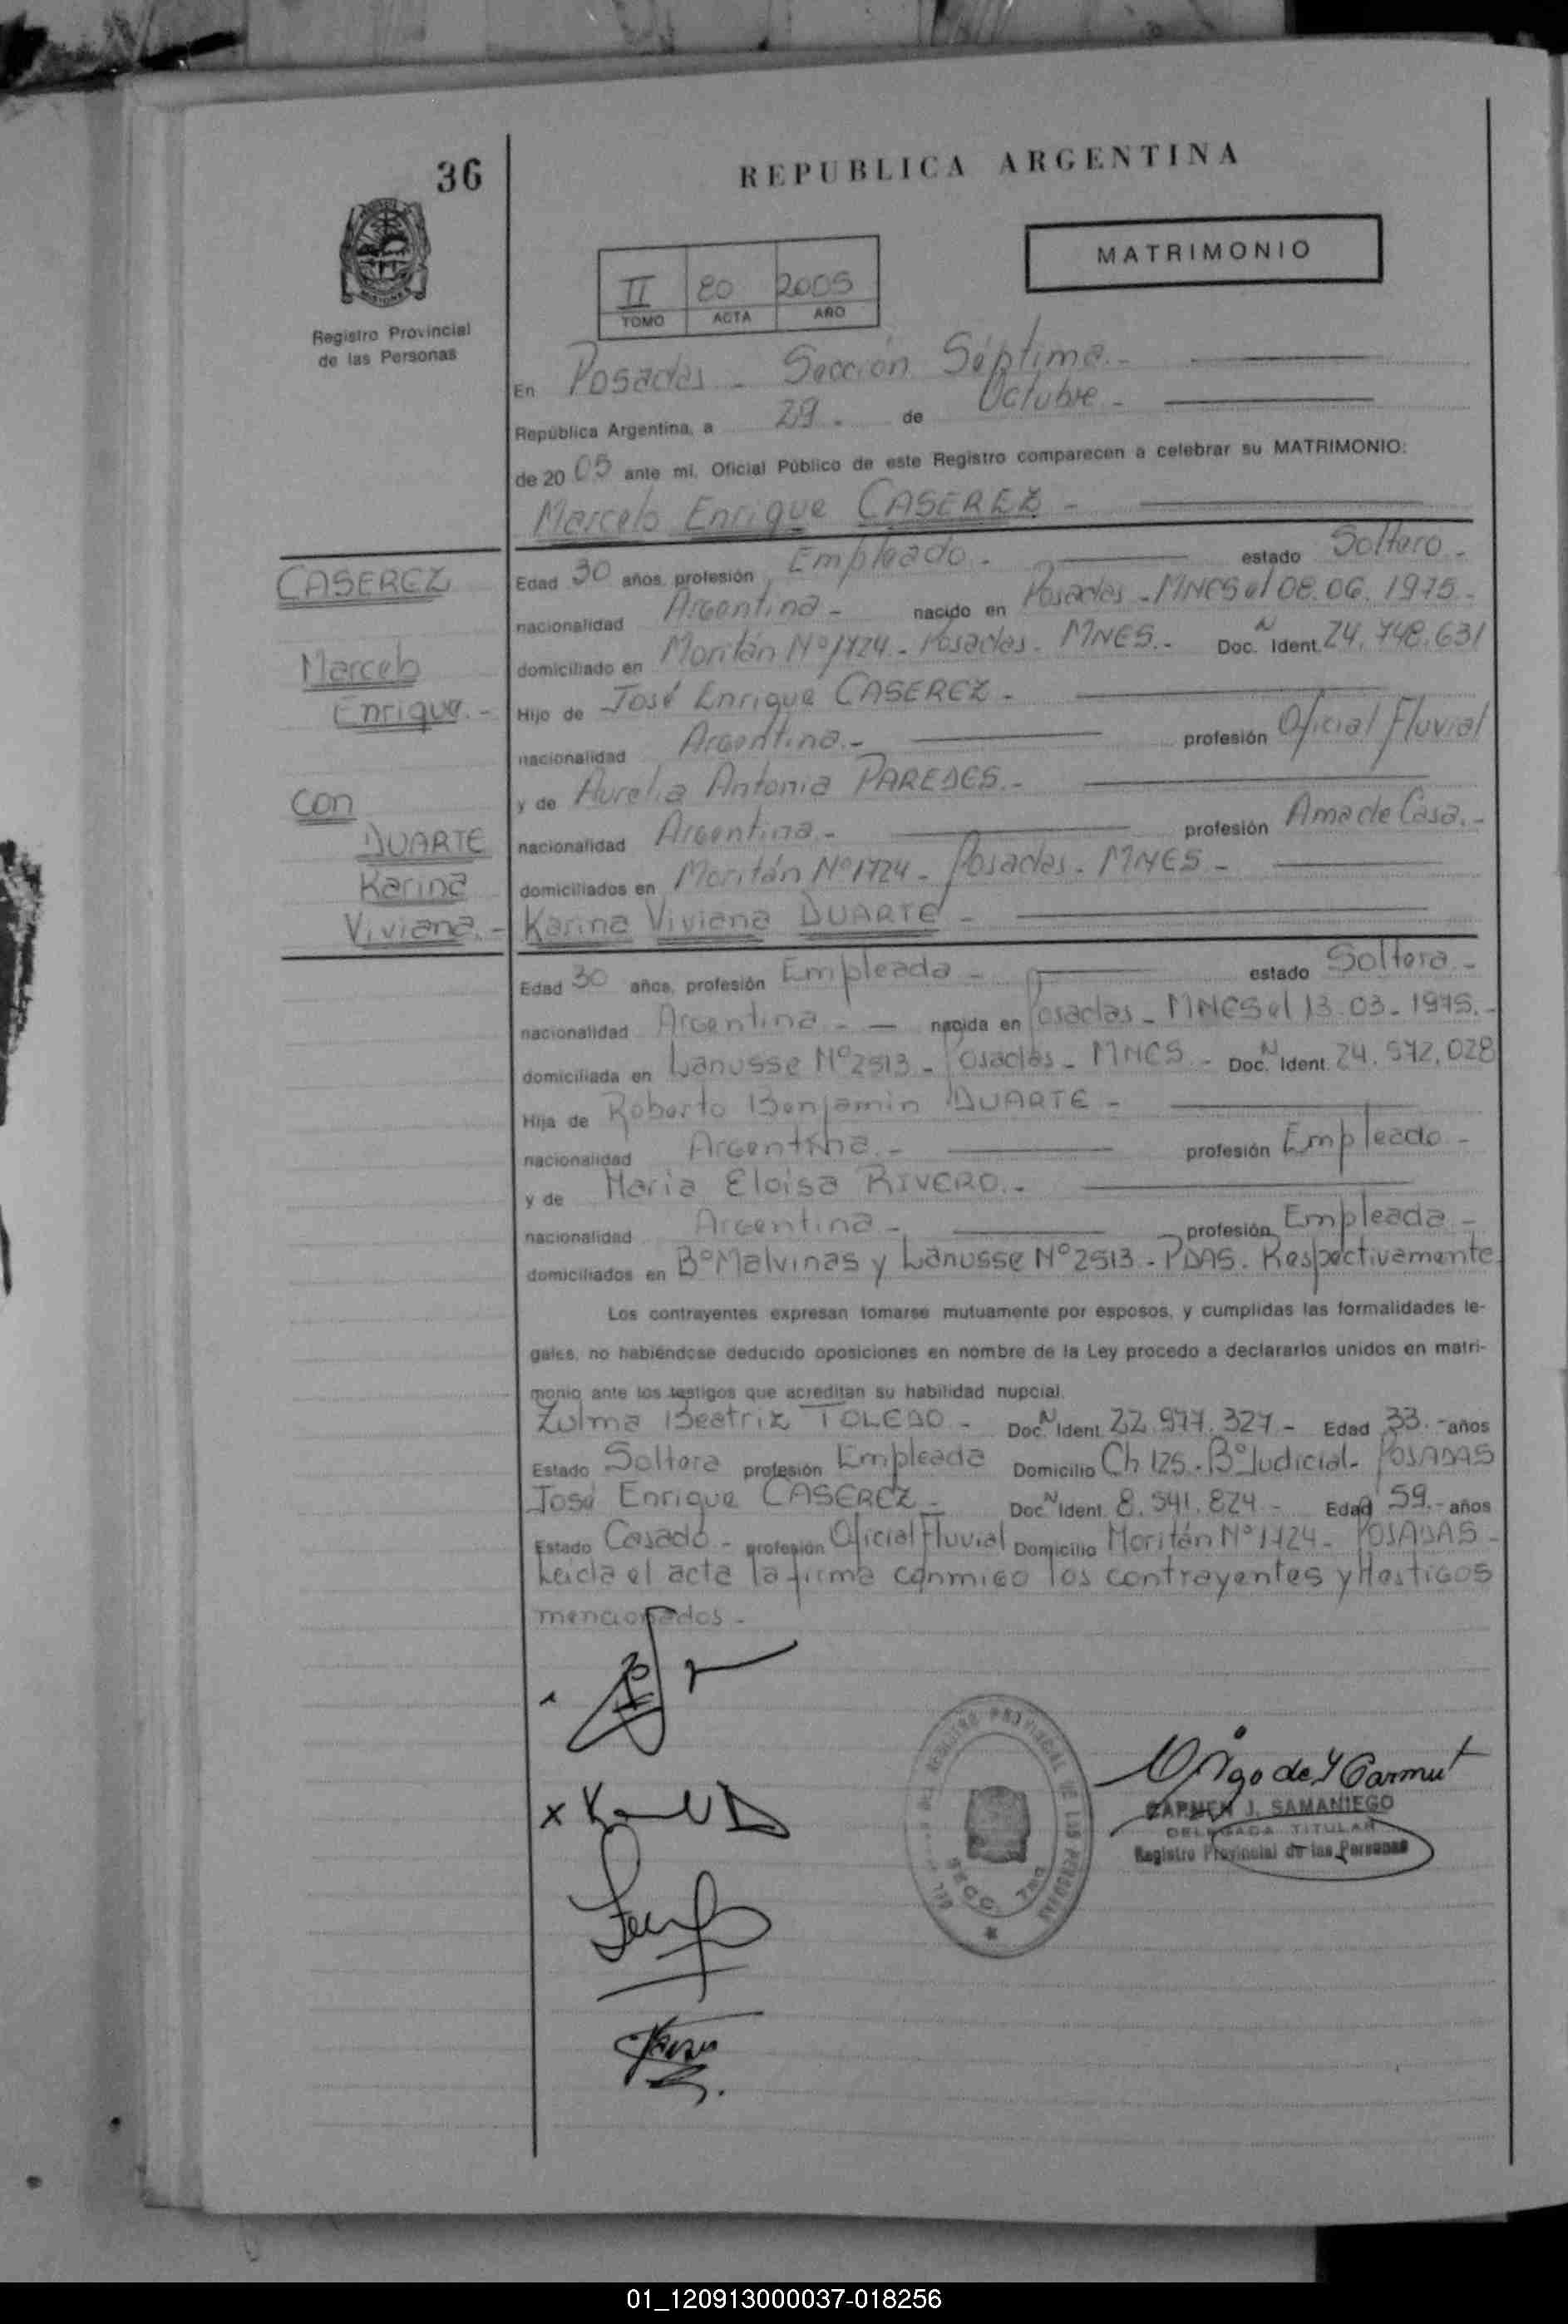 36
REPUBLICA ARGENTINA
MATRIMONIO
II 80 2005
TOMO ACTA AÑO
Registro Provincial
de las Personas
En Posadas - Sección Séptima.-
República Argentina, a 29. de Octubre -
de 2005 ante mi, Oficial Público de este Registro comparecen a celebrar su MATRIMONIO:
Marcelo Enrique CASEREZ -
CASEREZ
Marcelo
Enrique.-
con
DUARTE
Karina
Viviana.-
Edad 30 años, profesión Empleado - estado Soltero -
nacionalidad Argentina - nacido en Posadas - MNES el 08.06.1975-
domiciliado en Moritán Nº1724 - Posadas - MNES.- Doc. N Ident. 24.748.631
Hijo de José Enrique CASEREZ -
nacionalidad Argentina.- profesión Oficial Fluvial
y de Aurelia Antonia PAREDES.-
nacionalidad Argentina.- profesión Ama de Casa.-
domiciliados en Moritán Nº1724 - Posadas - MNES -
Karina Viviana DUARTE -
Edad 30 años, profesión Empleada - estado Soltera -
nacionalidad Argentina - nacida en Posadas - MNES el 13.03.1975.-
domiciliada en Lanusse Nº2513 - Posadas - MNES - Doc. N Ident. 24.572.028
Hija de Roberto Benjamin DUARTE -
nacionalidad Argentina - profesión Empleado -
y de Maria Eloisa RIVERO.-
nacionalidad Argentina - profesión Empleada -
domiciliados en Bº Malvinas y Lanusse Nº2513 - PDAS. Respectivamente
Los contrayentes expresan tomarse mutuamente por esposos, y cumplidas las formalidades le-
gales, no habiéndose deducido oposiciones en nombre de la Ley procedo a declararlos unidos en matri-
monio ante los testigos que acreditan su habilidad nupcial.
Zulma Beatriz TOLEDO - Doc. N Ident. 22.977.327 - Edad 33.- años
Estado Soltera profesión Empleada Domicilio Ch 125 - Bº Judicial - POSADAS
José Enrique CASEREZ - Doc. N Ident. 8.541.824 - Edad 59.- años
Estado Casado - profesión Oficial Fluvial Domicilio Moritán Nº1724 - POSADAS -
Leida el acta la firma conmigo los contrayentes y testigos
mencionados -
CARMEN J. SAMANIEGO
DELEGADA TITULAR
Registro Provincial de las Personas
01_120913000037-018256